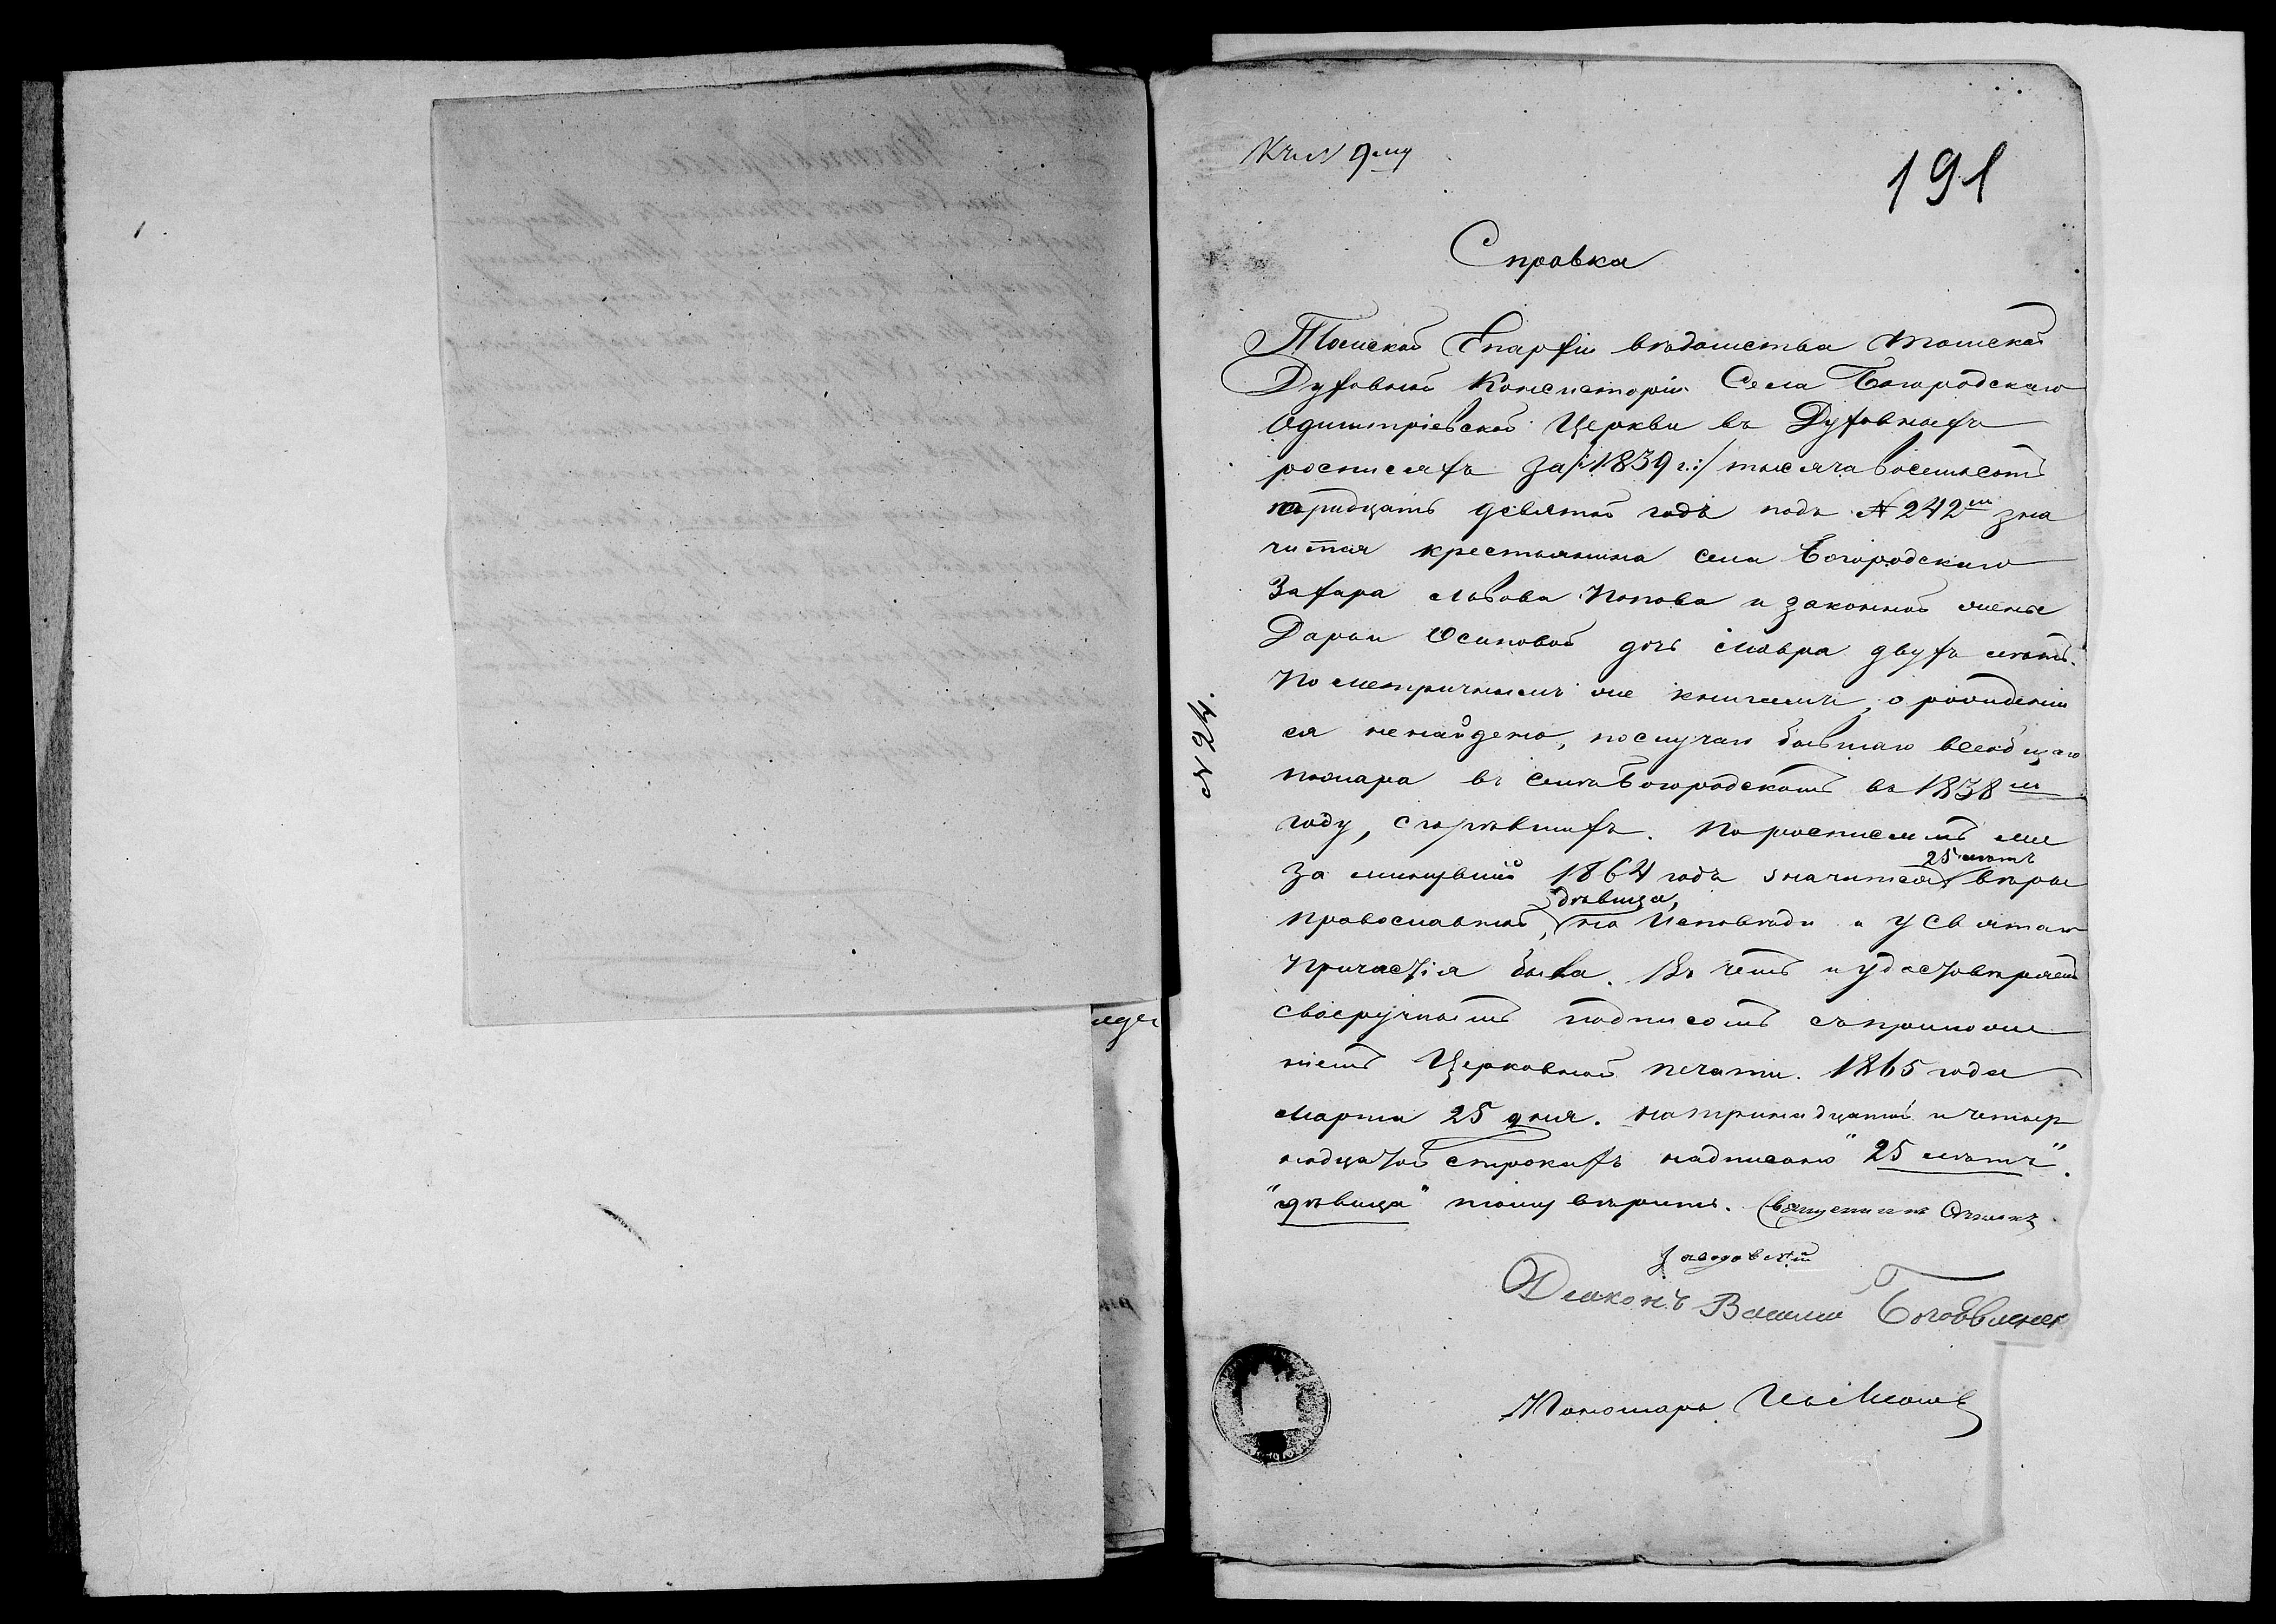 К № 9му
191
Справка
Томской Епархіи вѣдомства Томской
Духовной Консисторіи Села Богородскаго
Одигитріевской Церкви въ Духовныхъ
росписяхъ за /:1839 г.:/ тысяча восемьсотъ
тридцать девятый годъ подъ № 242м зна
чится крестьянина села Богородскаго
Захара Львова Попова и законной жены
Дарьи Осиповой дочь Мавра двухъ лѣтъ.
По метричнымъ же книгамъ о рожденіи
ея не найдено, по случаю бывшаго всеобщаго
пожара въ селѣ Богородскомъ въ 1838м
году, сгорѣвшихъ. По росписямъ же
25 лѣтъ
за минувшій 1864 годъ значится вѣры
дѣвица,
православной, на Исповѣди и у Святаго
Причастія была. Въ чемъ и удостовѣряемъ
своеручнымъ подписомъ съ приложе
ніемъ Церковной печати. 1865 года
Марта 25 дня. На тринадцатой и четыр
надцатой строкахъ надписано "25 лѣтъ".
"дѣвица" тому вѣрить. Священникъ Симеонъ
Заводовскій
Діаконъ Василій Богоявленск
Пономарь
№ 24.